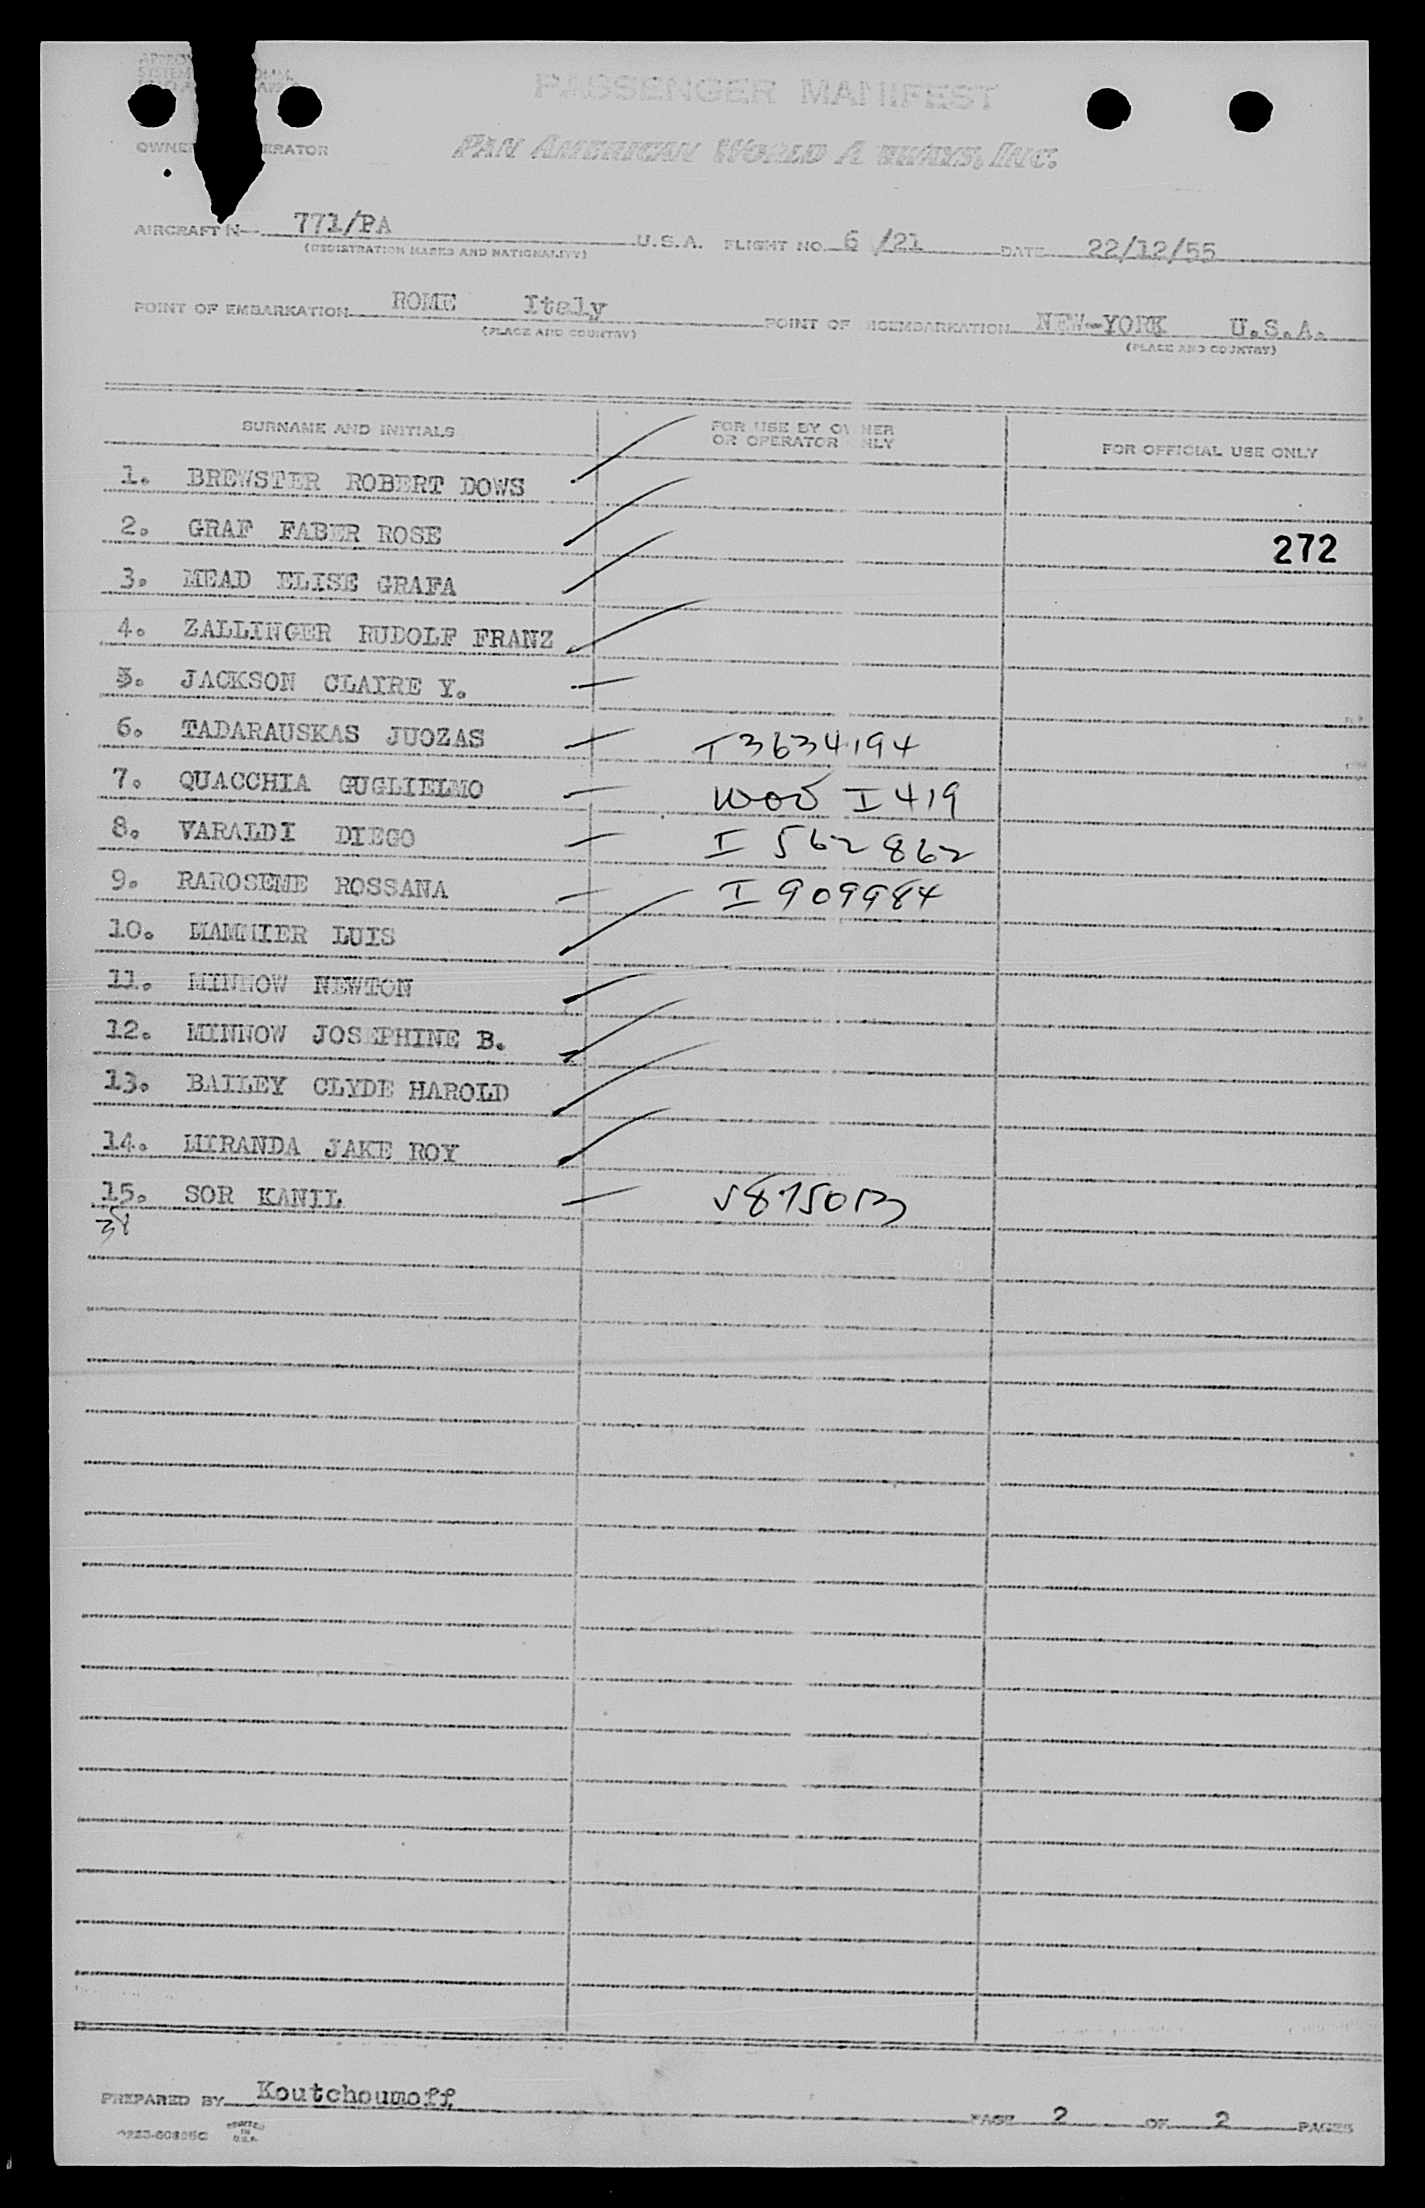 PASSENGER MANIFEST
PAN AMERICAN WORLD A RWAYS, INC.
AIRCRAFT N 771/PA U.S.A. FLIGHT NO. 6 /21 DATE 22/12/55
(REGISTRATION MARKS AND NATIONALITY)
POINT OF EMBARKATION ROME Italy POINT OF ISEMBARKATION NEW-YORK U.S.A.
(PLACE AND COUNTRY) (PLACE AND COUNTRY)
SURNAME AND INITIALS FOR USE BY OWNER OR OPERATOR ONLY FOR OFFICIAL USE ONLY
1. BREWSTER ROBERT DOWS
2. GRAF FABER ROSE 272
3. MEAD ELISE GRAFA
4. ZALLINGER RUDOLF FRANZ
5. JACKSON CLAIRE Y.
6. TADARAUSKAS JUOZAS T3634194
7. QUACCHIA GUGLIELMO I 419
8. VARALDI DIEGO I 562862
9. RAROSEME ROSSANA I 909984
10. MAMMIER LUIS
11. MINNOW NEWTON
12. MINNOW JOSEPHINE B.
13. BAILEY CLYDE HAROLD
14. MIRANDA JAKE ROY
15. SOR KANIL
38
PREPARED BY Koutchoumoff PAGE 2 OF 2 PAGES
PRINTED IN U.S.A.